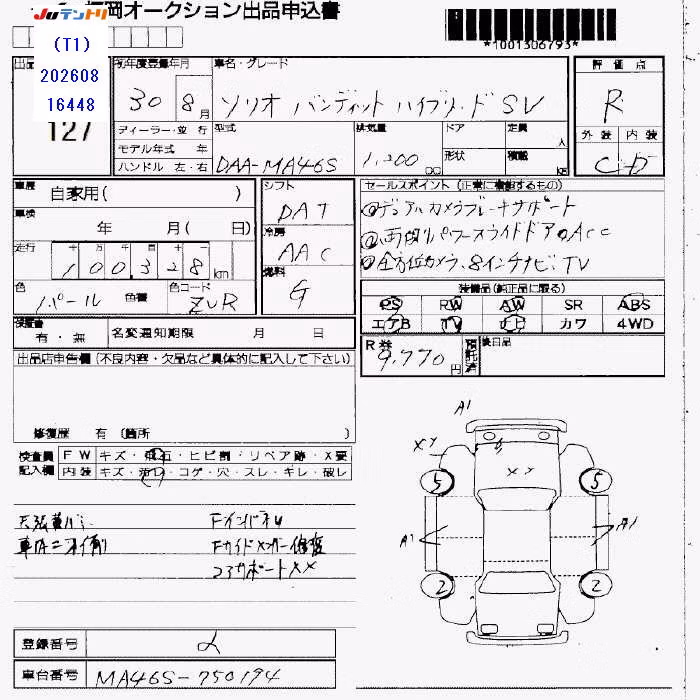 福岡オークション出品申込書
JUテントリ
(T1)
202608
16448
*1001306793*
127
初年度登録年月
30
8月
車名・グレード
ソリオ バンディット ハイブリード SV
評価点
R
外装 内装
C D
ディーラー・並行
モデル年式 年
ハンドル 左・右
型式
DAA-MA46S
排気量
1,200 cc
ドア
形状
定員 人
積載 kg
車歴
自家用( )
車検
年 月( 日)
走行
十 万 千 百 十 一
100328km
色
パール
色替
色コード
ZVR
シフト
DAT
冷房
AAC
燃料
G
セールスポイント (正常に機能するもの)
デュアルカメラブレーキサポート
両側パワースライドドア Acc
全方位カメラ、8インチナビ、TV
装備品(純正品に限る)
PS RW AW SR ABS
エアB TV ナビ カワ 4WD
保証書
有・無
名変通知期限 月 日
R券
9,770円
預託済
後日品
出品店申告欄 (不良内容・欠品など具体的に記入して下さい)
修復歴 有 (箇所 )
検査員記入欄
FW キズ・飛石・ヒビ割・リペア跡・X要
内装 キズ・汚れ・コゲ・穴・スレ・キレ・破レ
FインパネU
Fサイドメンバー修復
コアサポートXX
A1
XY
XX
5
5
A1
A1
2
2
登録番号
車台番号
MA46S-750194